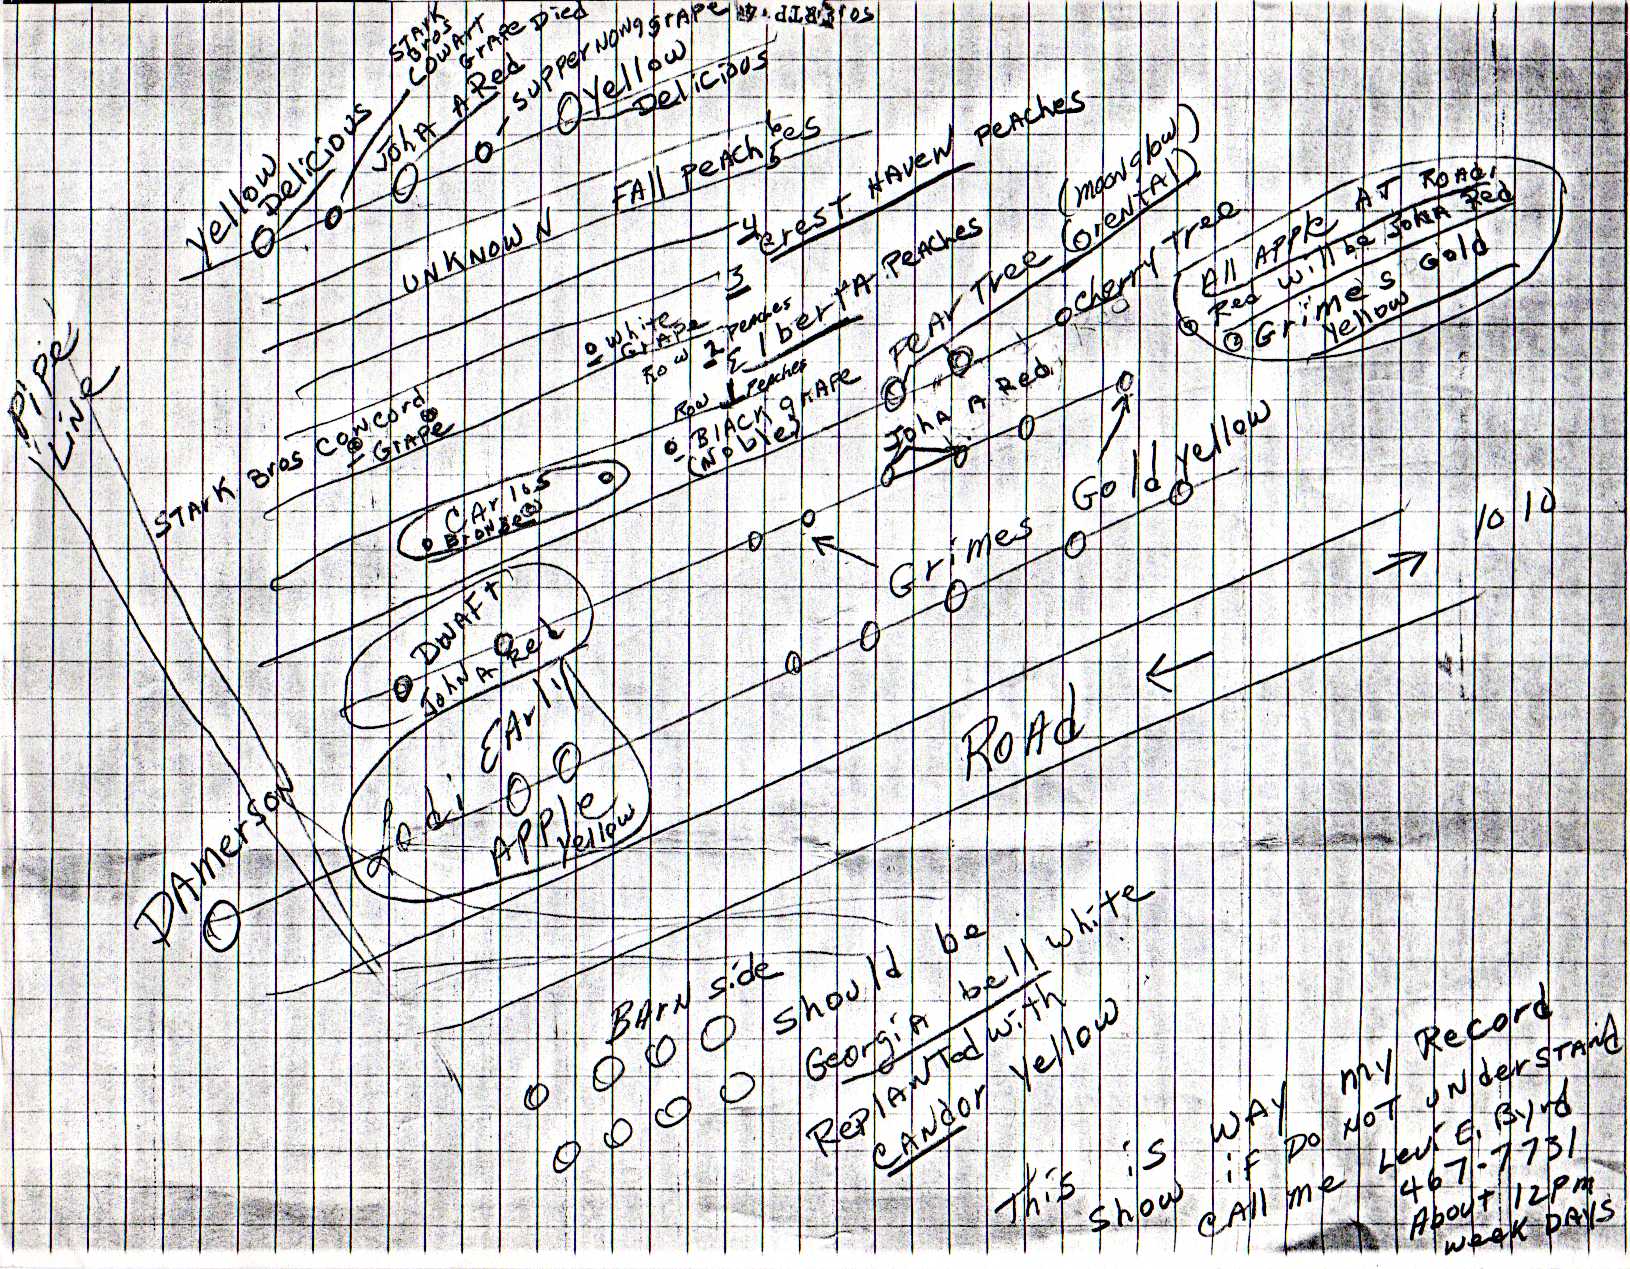 STARK
Bros
COWART
GRAPE Died
SUPPERNONGGRAPE
John A Red
Yellow
Delicious
Yellow
Delicious
UNKNOWN FAll PeAches
6
5
4
crest HAven PeAches
3
White
GrApe
Row 2 PeAches
ElbertA PeAches
Row 1 PeAches
BlACk grApe
(Noble)
PeAr Tree (moonglow)
(OrientAl)
Cherry Tree
All Apple AT ROAd,
Red will be John A Red
Grimes Gold
Yellow
Pipe
Line
STArk Bros Concord
GrApe
CArlos
Bronze
John A Red
Grimes Gold Yellow
DwAFt
John A Red
Lodi EArly
APPle
Yellow
DAmerson
10 10
ROAd
BArn side
Should be
GeorgiA bell white
ReplAnTed with
CANdor Yellow
This is wAy my Record
Show iF Do NOT UNderSTANd
CAll me Levi E. Byrd
467-7731
About 12 Pm
week DAYS